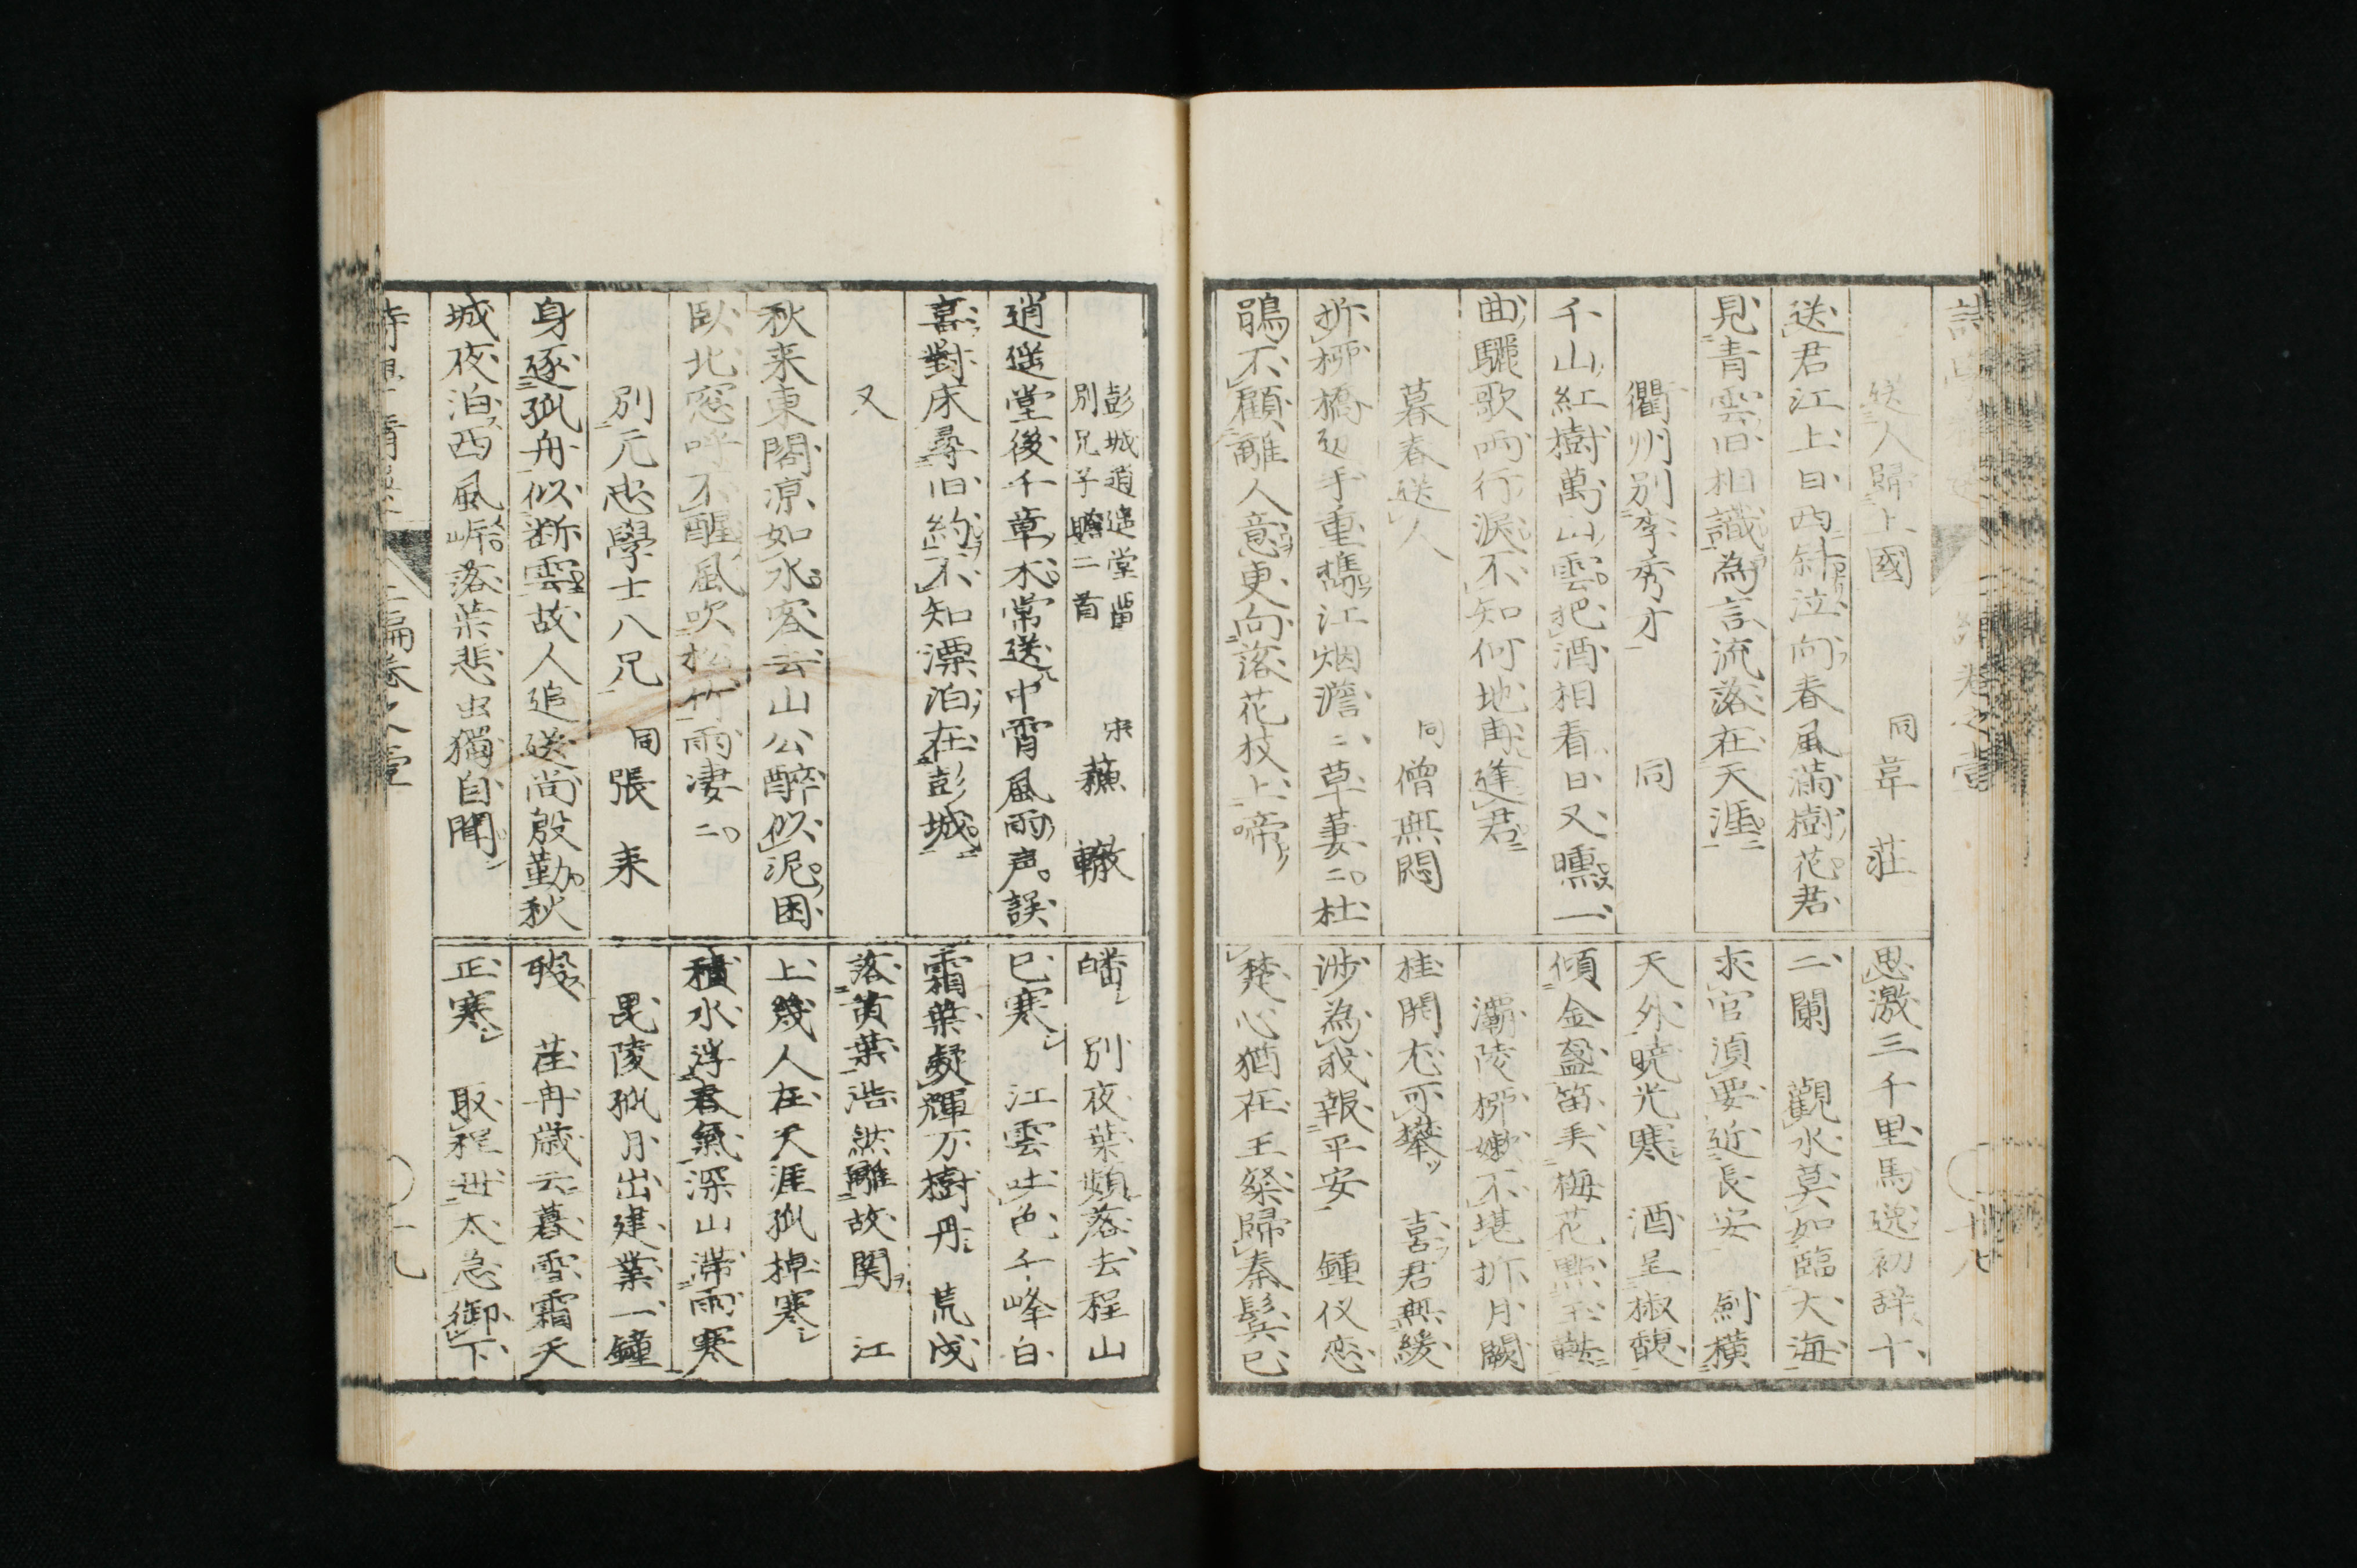 送人歸上國 同 韋 莊
送君江上日西斜泣向春風滿樹花君
見青雲旧相識為言流落在天涯
衢州別李秀才 同
千山紅樹萬山雲把酒相看日又曛一
曲驪歌両行淚不知何地再逢君
暮春送人 同 僧無悶
折柳橋辺手重攜江烟澹〻草萋〻杜
鵑不顧離人意更向落花枝上啼
思激三千里馬逸初辞十
二闌 觀水莫如臨大海
求官湏要近長安 劍横
天外暁光寒 酒呈椒馥
傾金盞笛美梅花點玉鞍
灞陵柳嫩不堪折月闕
桂開尤可攀 喜君無緩
涉為我報平安 鍾仪恋
楚心猶在王粲歸秦鬂已
彭城逍遥堂留
別兄子瞻二首 宋 蘇 轍
逍遥堂後千章木常送中宵風雨声誤
喜對床尋旧約不知漂泊在彭城
又
秋来東閣凉如水客去山公醉似泥困
臥北窓呼不醒風吹松竹雨凄〻
別元忠學士八兄 同 張 耒
身逐孤舟似断雲故人追送尚殷勤秋
城夜泊西風岸落葉悲虫獨自聞
皤 別夜葉頻落去程山
已寒 江雲吐色千峰白
霜葉凝輝万樹丹 荒戍
落黄葉浩然離故関 江
上幾人在天涯孤棹寒
積水浮春氣深山滞雨寒
毘陵孤月出建業一鐘
残 荏冉歳云暮雪霜天
正寒 取程丗太急御下
上編卷之壹
十九